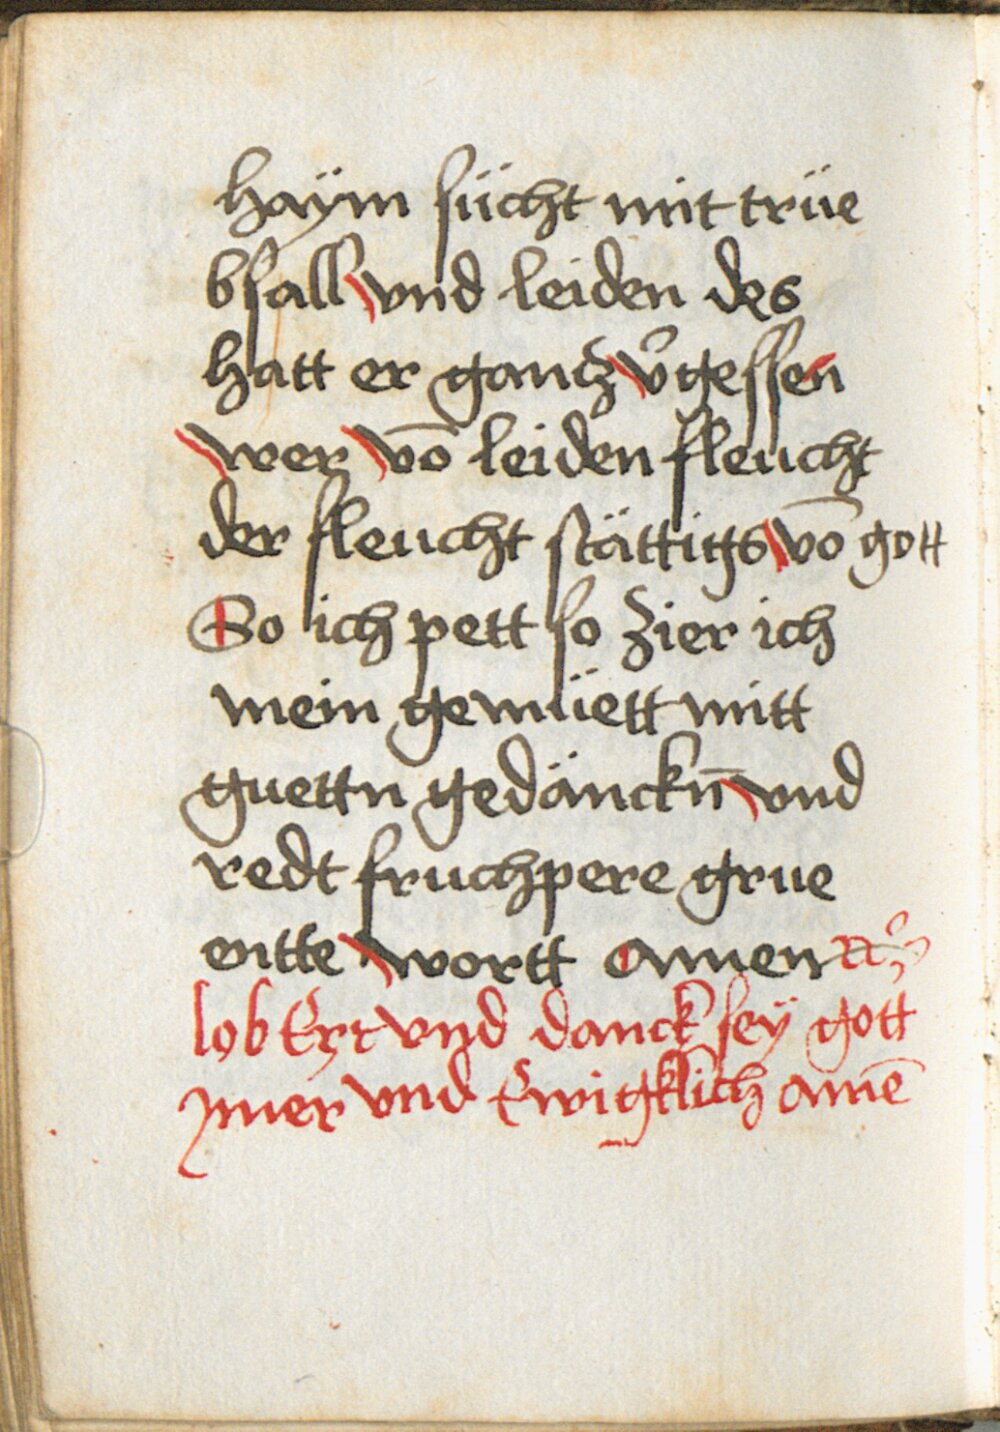 haÿm sücht mit trüe
bsall vnd leiden des
hatt er gantz v̉gessen
wer vō leiden fleucht
der fleucht stättigs vō gott
So ich pett so zier ich
mein gemüett mitt
guettn gedänckn̄ vnd
redt fruchpere grue
entte wortt Amen
lob Ert vnd danck seÿ gott
ymer vnd Ewigklich amē